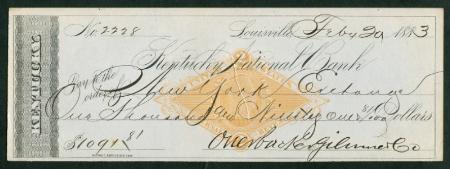 No. 2228 Louisville, Feby 20 1883
KENTUCKY
Kentucky National Bank
Pay to the
order of New York Exchange
One Thousand and Ninety One 81/100 Dollars
$1091 81
& Gilmore Co